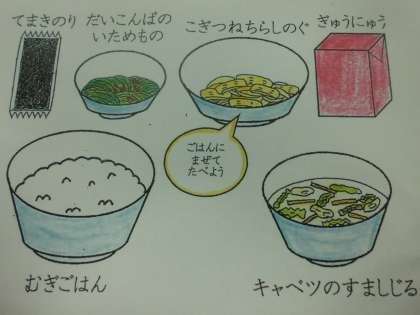 てまきのり
だいこんばの
いためもの
こぎつねちらしのぐ
ぎゅうにゅう
ごはんに
まぜて
たべよう
むぎごはん
キャベツのすましじる